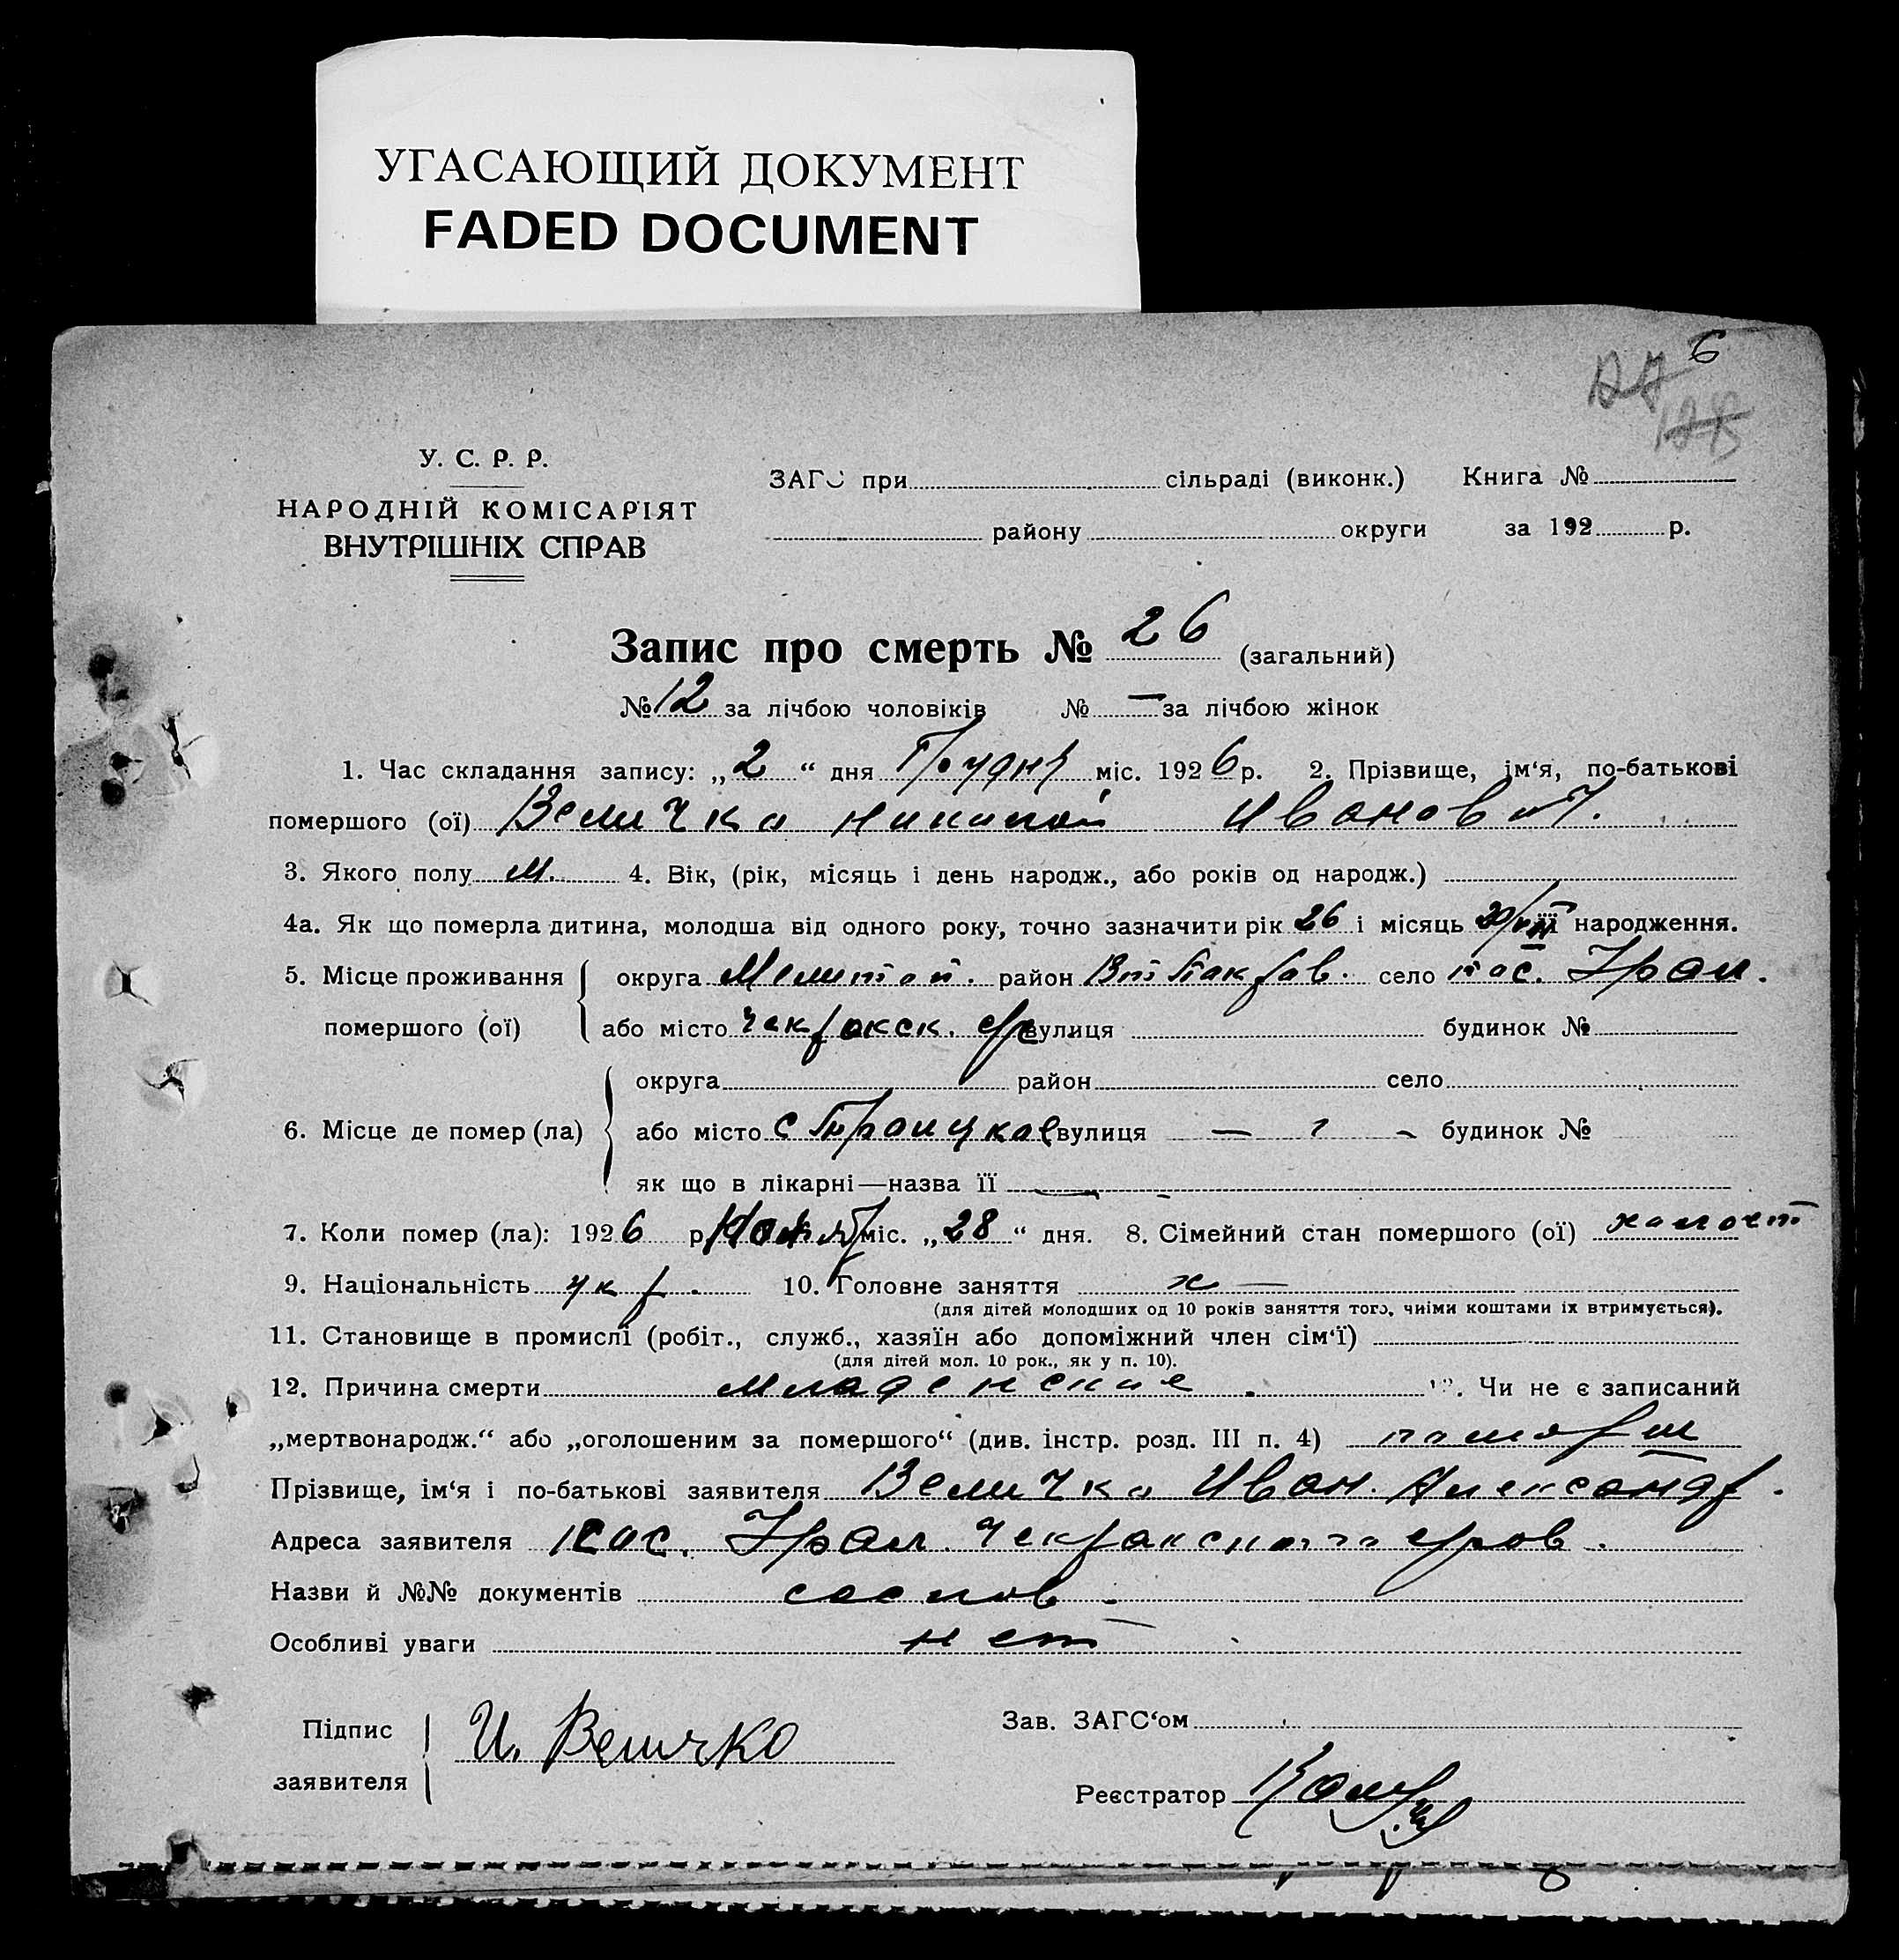 УГАСАЮЩИЙ ДОКУМЕНТ
FADED DOCUMENT
6
У. С. Р. Р.
НАРОДНІЙ КОМІСАРІЯТ
ВНУТРІШНІХ СПРАВ
ЗАГС при сільраді (виконк.) Книга №
району округи за 192 р.
Запис про смерть № 26 (загальний)
№ 12 за лічбою чоловіків № — за лічбою жінок
1. Час складання запису: „2“ дня Грудня міс. 1926 р. 2. Прізвище, ім‘я, по-батькові
помершого (ої) Величко Николай Иванович.
3. Якого полу м. 4. Вік, (рік, місяць і день народж., або років од народж.)
4а. Як що померла дитина, молодша від одного року, точно зазначити рік 26 і місяць її народження.
5. Місце проживання округа Мелитоп. район село пос.
помершого (ої) або місто Чекракск. вулиця будинок №
округа район село
6. Місце де помер (ла) або місто с Троицкое вулиця — будинок №
як що в лікарні—назва її —
7. Коли помер (ла): 1926 р. міс. „28“ дня. 8. Сімейний стан помершого (ої) холост
9. Національність укр. 10. Головне заняття х —
(для дітей молодших од 10 років заняття того, чиїми коштами їх втримується).
11. Становище в промислі (робіт., служб., хазяїн або допоміжний член сім‘ї)
(для дітей мол. 10 рок., як у п. 10).
12. Причина смерти младенские. 13. Чи не є записаний
„мертвонародж.“ або „оголошеним за помершого“ (див. інстр. розд. III п. 4)
Прізвище, ім‘я і по-батькові заявителя Величко Иван. Александр.
Адреса заявителя пос. Чекракского
Назви й №№ документів
Особливі уваги нет
Підпис
заявителя
И. Величко
Зав. ЗАГС‘ом
Реєстратор